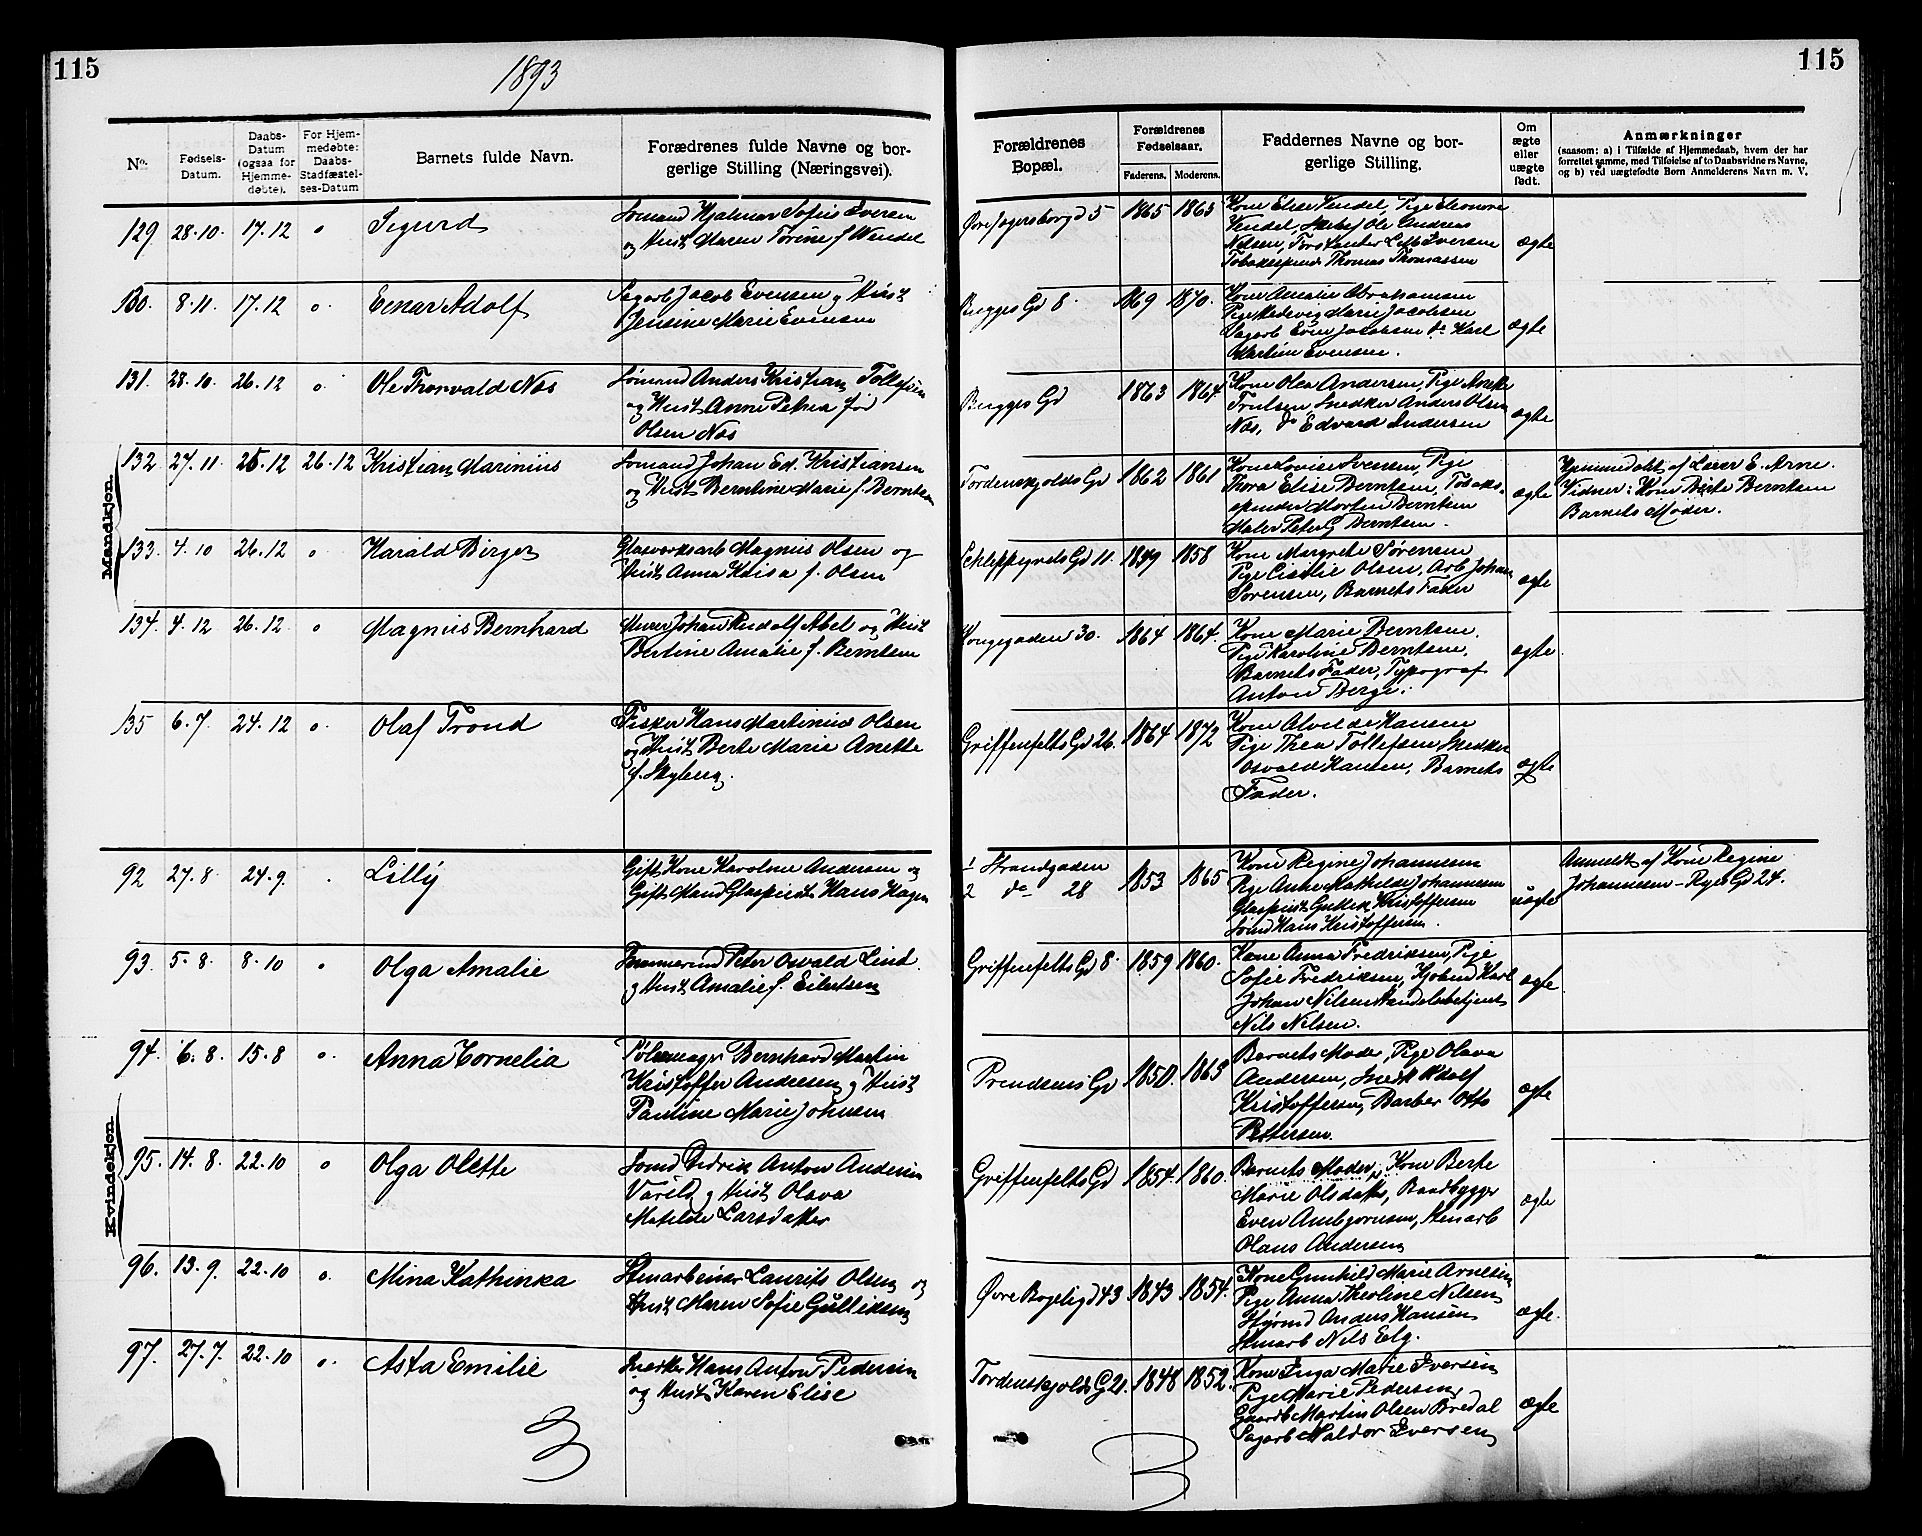 115
1893
115
No.
Fødsels-
Datum.
Daabs-
Datum
(ogsaa for
Hjemme-
døbte).
For Hjem-
medøbte:
Daabs-
Stadfæstel-
ses-Datum
Barnets fulde Navn.
Forædrenes fulde Navne og bor-
gerlige Stilling (Næringsvei).
Forældrenes
Bopæl.
Forældrenes
Fødselsaar.
Faderens.
Moderens.
Faddernes Navne og bor-
gerlige Stilling.
Om
ægte
eller
uægte
født.
Anmærkninger
(saasom: a) i Tilfælde af Hjemmedaab, hvem der har
forrettet samme, med Tilføielse af to Daabsvidners Navne,
og b) ved uægtefødte Børn Anmelderens Navn m. V.
Mandkjøn.
129 28.10. 17.12 o Sigurd
Sømand Hjalmar Sofus Iversen
og Hust Maren Torine f. Wendel
Øvre Jegersborgd 5 1865 1863
Kone Elise Vendel, Pige Eleonore
Vendel, Ole Andreas
Nilsen, Iversen
Thomas Thomassen
ægte
130. 8.11. 17.12 o. Einar Adolf
Sagarb Jacob Evensen og Hust
Jensine Marie Evensen
Bugges Gd 8. 1869 1870.
Kone Amalie Abrahamsen
Pige Hedevig Marie Jacobsen
Sagarb Even Jacobsen do Karl
Martin Evensen.
ægte
131. 28.10. 26.12 o. Ole Thorvald Næs
Sømand Anders Kristian Tollefsen
og Hust Anne Petrea fød
Olsen Næs
Bugges Gd 1863 1864.
Kone Olea Andersen, Pige
Trulsen, Snedker Anders Olsen
Næs, do Edvard Andersen
ægte
132 27.11. 25.12 26.12 Kristian Marinius
Sømand Johan Ed. Kristiansen
og Hust Berntine Marie f. Berntsen
Tordenskjolds Gd 1862 1861
Kone Lovise Svensen, Pige
Thora Elise Berntsen, Tobaks-
spinder Morten Berntsen
Maler Peter G Berntsen.
ægte
Hjemmedøbt af Lærer E. Arne.
Vidner: Kone Berte Berntsen
Barnets Moder.
133. 4.10 26.12 o Harald Birger
Glasværksarb Magnus Olsen og
Hust Anna Lovisa f. Olsen
Schleppegrels Gd 11. 1849 1858
Kone Margrete Sørensen
Pige Cicilie Olsen, Arb Johan
Sørensen, Barnets Fader
ægte
134. 4.12 26.12 o Magnus Bernhard
Murer Johan Rudolf Abel og Hust
Bertine Amalie f. Berntsen
Kongegaden 30. 1864 1864.
Kone Marie Berntsen.
Pige Karoline Berntsen,
Barnets Fader, Typograf
Anton Berge.
ægte
135 6.7. 24.12 o. Olaf Trond
Fisker Hans Martinius Olsen
og Hust Berte Marie Anette
f. Skyberg.
Griffenfelts Gd 26. 1864 1872
Kone Alvilde Hansen
Pige Thea Tollefsen Snedker
Osvald Hansen, Barnets
Fader.
ægte
Kvindekjøn.
92 27.8 24.9. . Lilly
Gift Kone Karoline Andersen og
Gift Mand Glaspust Hans Hagen
1 Strandgaden
2 do 28 1853 1865
Kone Regine Johannesen
Pige Anne Mathilde Johannesen
Glaspust Gullik Kristoffersen
Sømd Hans Kristoffersen
uægte
Anmeldt af Kone Regine
Johannesen - Ryes Gd 24.
93. 5.8. 8.10 o Olga Amalie
Tømmermd Peter Osvald Lind.
og Hust Amalie f. Eilertsen
Griffenfelts Gd 8. 1859 1860.
Kone Anna Fredriksen, Pige
Sofie Fredriksen, Kjøbmd Karl
Johan Nilsen Handelsbetjent
Nils Nilsen.
ægte
94. 6.8. 15.8 o. Anna Cornelia
Pølsemager Bernhard Martin
Kristoffer Andersen og Hust
Pauline Marie Johnsen
Prendsens Gd 1850. 1863
Barnets Moder, Pige Olava
Andersen, Snedk Adolf
Kristoffersen, Barber Otto
Pettersen.
ægte
95. 14.8. 22.10 o Olga Olette
Sømd Didrik Anton Andersen
Varild og Hust Olava
Matilde Larsdatter
Griffenfelts Gd 1854. 1860.
Barnets Moder, Kone Berte
Marie Olsdatter, Baadbygger
Even Ambjørnsen, Stenarb
Olaus Andersen
ægte
96. 13.9. 22.10 o. Mina Kathinka
Stenarbeider Laurits Olsen og
Hust Maren Sofie Gulliksen
Øvre Bøgeligd 43 1843 1854.
Kone Gunhild Marie Arnesen
Pige Anna Theoline Nilsen
Styrmd Anders Hansen
Stenarb Nils Elg.
ægte.
97. 27.7. 22.10 o. Asta Emilie
Snedker Hans Anton Pedersen
og Hust Karen Elise
Tordenskjolds G 21. 1848 1852.
Kone Inga Marie Iversen
Pige Marie Pedersen,
Gaardb Martin Olsen Bredal
Sagarb Haldor Iversen
ægte